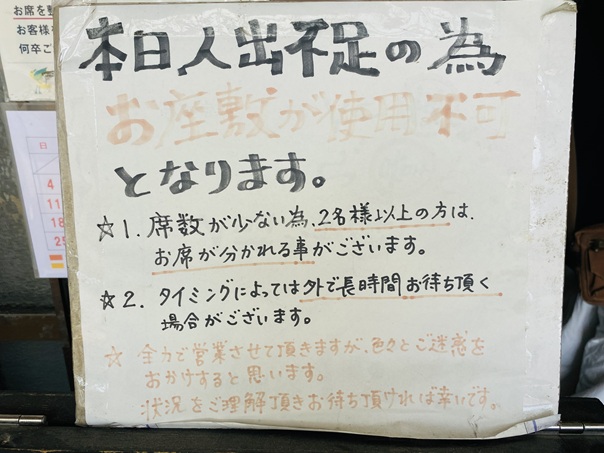 お席を
お客様
何卒ご
日
4
11
18
25
本日人出不足の為
お座敷が使用不可
となります。
☆1. 席数が少ない為、2名様以上の方は、
お席が分かれる事がございます。
☆2. タイミングによっては外で長時間お待ち頂く
場合がございます。
☆ 全力で営業させて頂きますが、色々とご迷惑を
おかけすると思います。
状況をご理解頂きお待ち頂ければ幸いです。